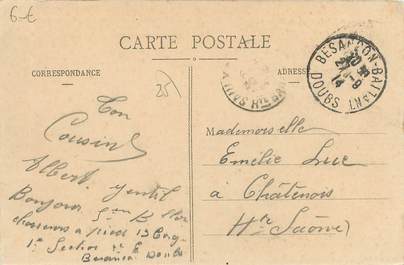 6-€
CARTE POSTALE
CORRESPONDANCE
ADRESSE
BESANÇON-BATTANT
DOUBS
25
Ton
Cousin
Albert Gentil
Bonjour
chasseurs à pied 15 Comp
1e Section
Besançon Doubs
Mademoiselle
Emélie Luc
à Châtenois
Hte Saône